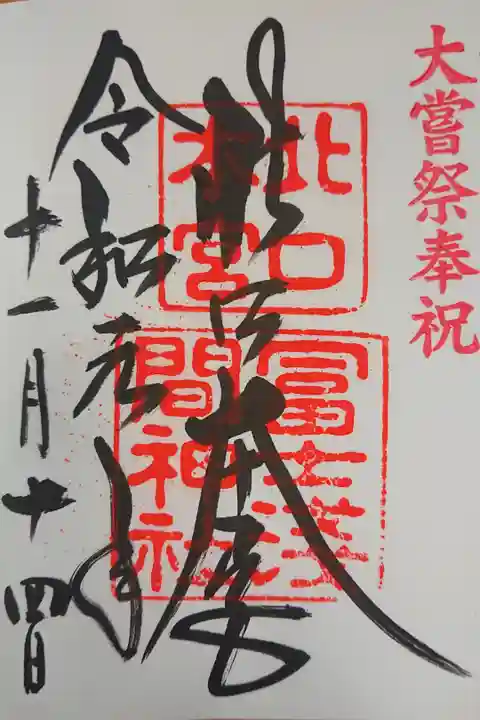 大嘗祭奉祝
北口
本宮
冨士浅
間神社
北口本宮
令和元年
十一月十四日